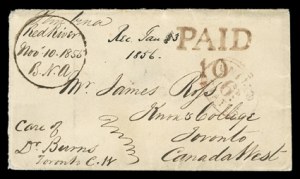 Red River
Nov 10 1855
B.N.A
Rec Jan 13
1856.
PAID
10
Mr. James Ross
Knox College
Toronto
Canada West
Care of
Dr Burns
Toronto C.W